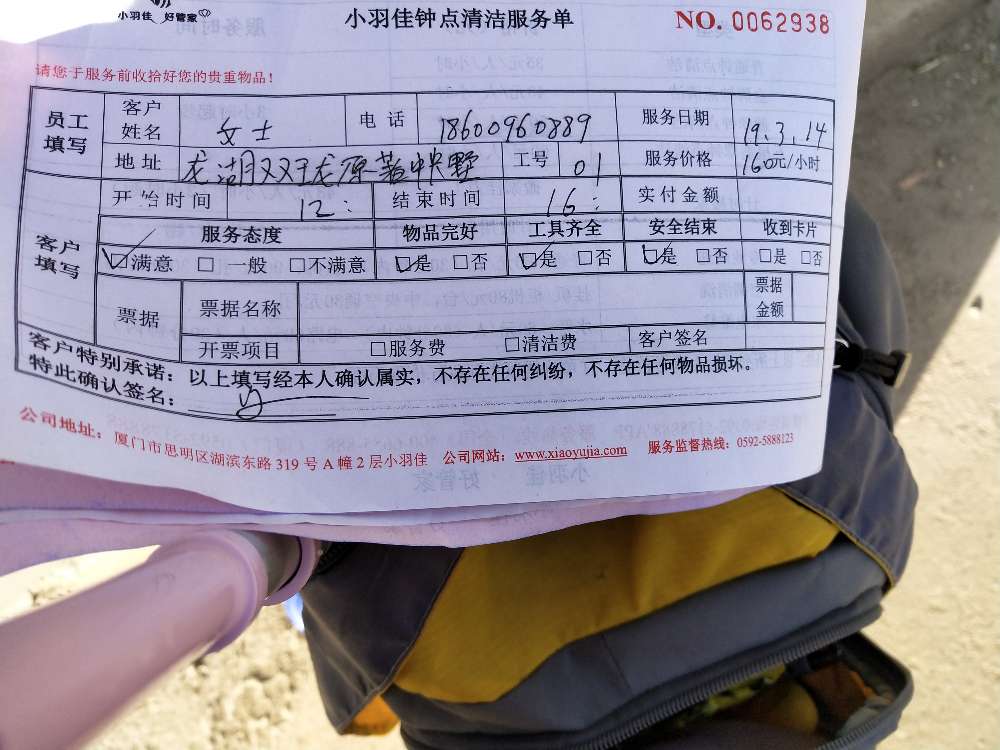 小羽佳 好管家
小羽佳钟点清洁服务单
NO. 0062938
请您于服务前收拾好您的贵重物品!
员工填写 客户姓名 女士 电话 18600960889 服务日期 19.3.14
地址 龙湖双珑原著中央墅 工号 01 服务价格 160元/小时
客户填写 开始时间 12: 结束时间 16: 实付金额
服务态度 物品完好 工具齐全 安全结束 收到卡片
☑满意 □一般 □不满意 ☑是 □否 ☑是 □否 ☑是 □否 □是 □否
票据 票据名称 票据金额
开票项目 □服务费 □清洁费 客户签名
客户特别承诺:以上填写经本人确认属实,不存在任何纠纷,不存在任何物品损坏。
特此确认签名:
公司地址:厦门市思明区湖滨东路319号A幢2层小羽佳 公司网站:www.xiaoyujia.com 服务监督热线:0592-5888123